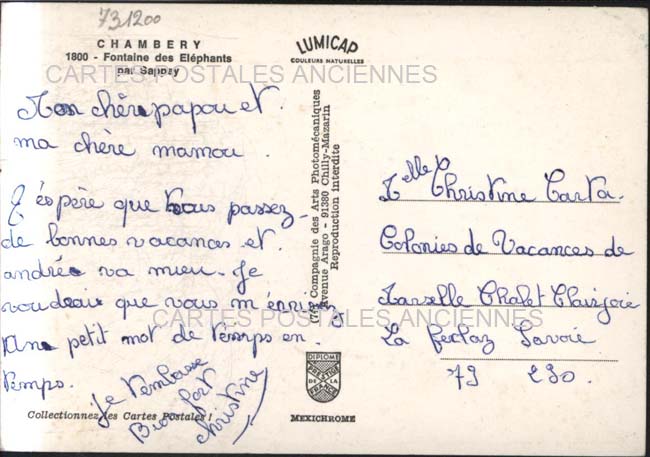 731200
CHAMBERY
1800 - Fontaine des Eléphants
par Sappey
LUMICAP
COULEURS NATURELLES
CARTES POSTALES ANCIENNES
Mon chère papou et
ma chère mamou.
J'éspère que vous passez
de bonnes vacances et
andrée va mieu. Je
voudrais que vous m'
un petit mot de temps en
temps.
Je t'embrasse
Bien fort
Christine
(74) Compagnie des Arts Photomécaniques
Avenue Arago - 91380 Chilly-Mazarin
Reproduction interdite
Melle Christine Carta
Colonies de Vacances de
Marselle Chalet Clairjoie
La feclaz Savoie
73 230.
CARTES POSTALES ANCIENNES
Collectionnez les Cartes Postales !
DIPLOME
PRESTIGE
DE LA
FRANCE
MEXICHROME